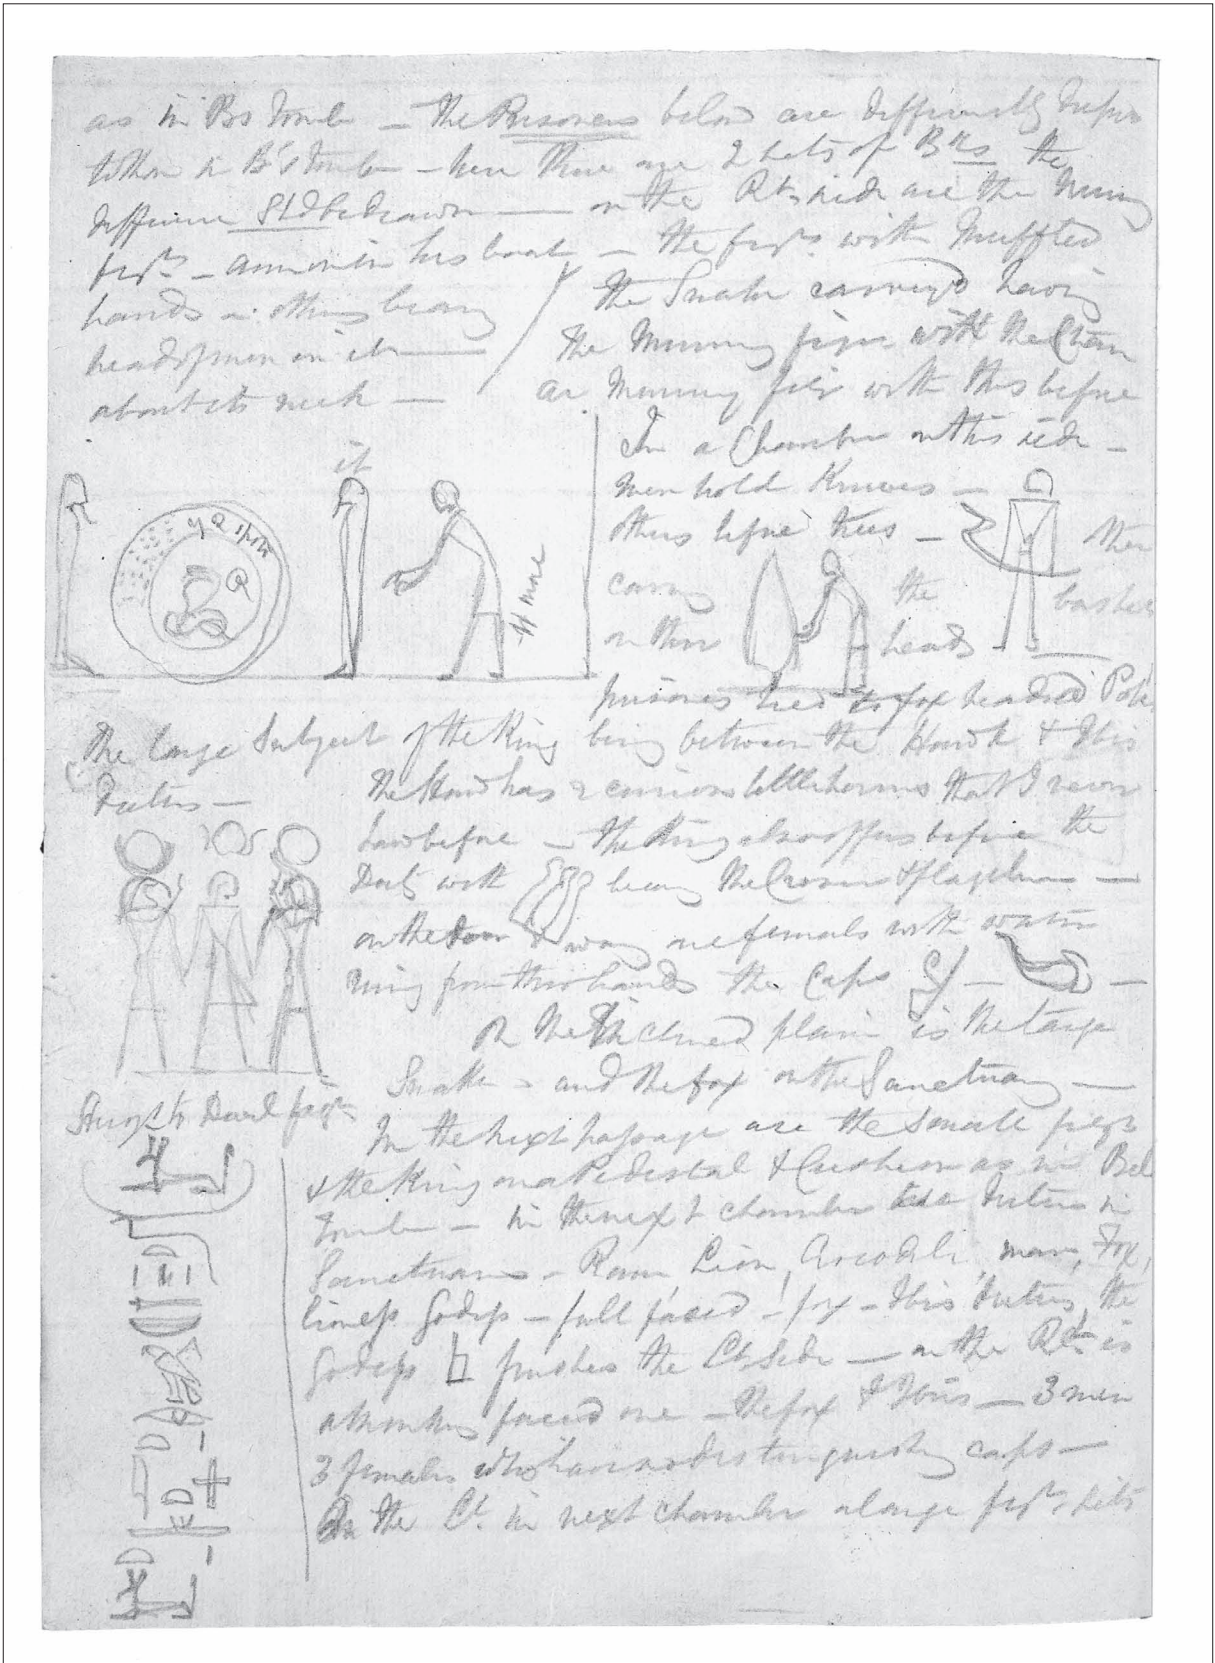 as in Bs Tomb — the Prisoners below are differently
in B's Tomb — here there are 2 sets of the
difference Sd be drawn — on the Rt. side are the Mummy
figrs — ammon in his boat — the figrs with Muffled
hands
the Snake carried having
heads of men on it —
the Mummy figr with the Chain
about its neck —
or Mummy figr with this before
it
In a Chamber on this side —
men hold Knives —
others before trees — others
carry the baskets
on their heads —
4 more
prisoners tied to fox headed Poles
The large Subject of the King being between the Hawk & Ibis
Deities —
the Hawk has 2 curious little horns that I never
saw before — the King also offers before the
Deity with being the Crosier & flagellum —
on the door way are females with water
from their hands the Caps —
on the Inclined plain is the large
Snake — and the fox on the Sanctuary —
In the next passage are the small figrs
& the King on a Pedestal & Cushion as in Bel
Tomb — in the next chamber are Deities in
Sanctuaries — Ram, Lion, Crocodile, man, Fox,
lioness Godess — full faced — fox — Ibis Deities, the
Godess finishes the Lt. Side — on the Rt. is
a monkey faced one — the fox & Ibis — 3 men
3 females who have no distinguishing caps —
On the Lt. in next chamber a large figr. sits